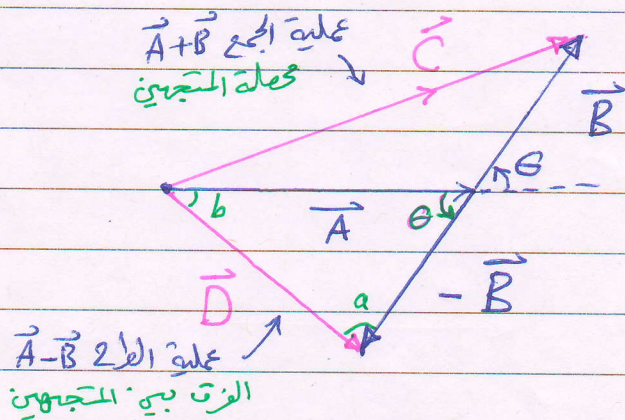 عملية الجمع A+B
محصلة المتجهين
C
B
θ
b
A
θ
D
a
-B
عملية الطرح A-B
الفرق بين المتجهين